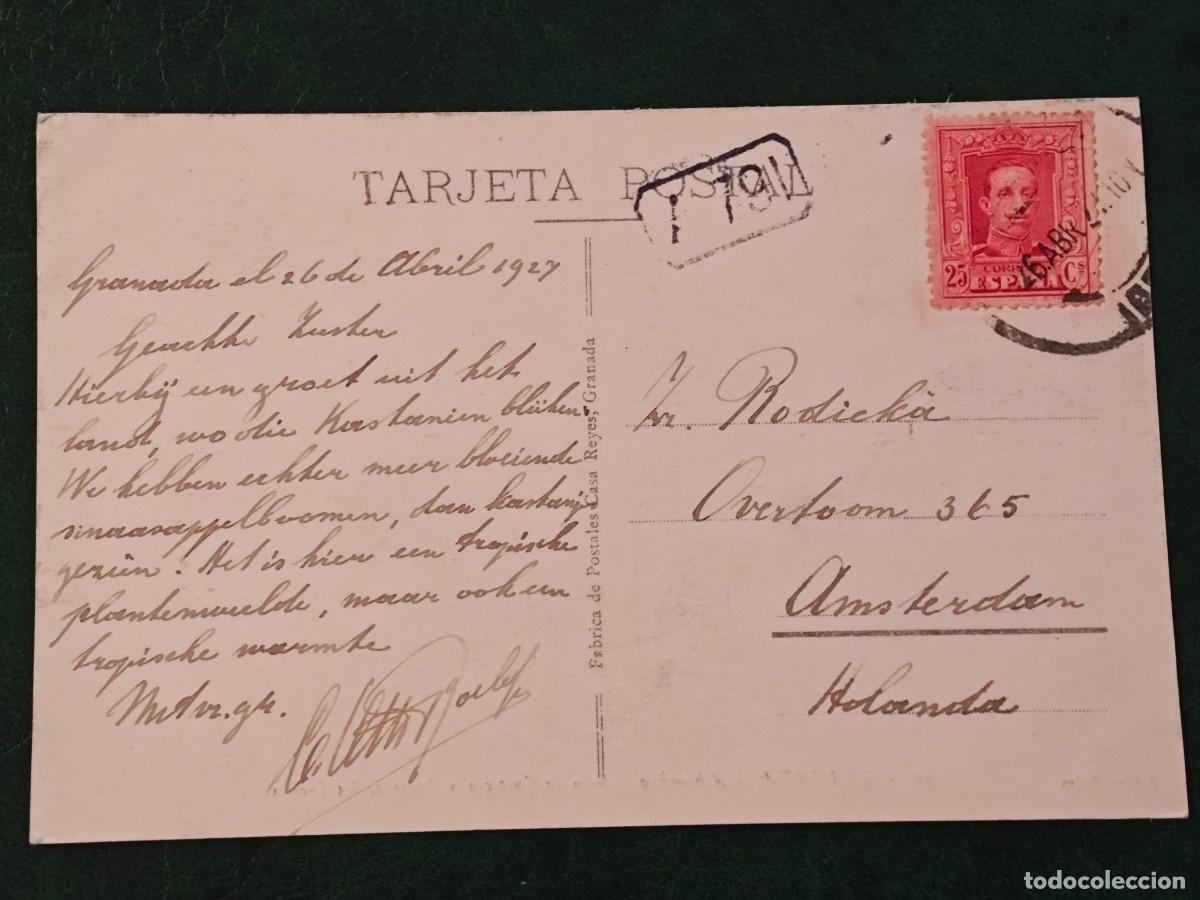 TARJETA POSTAL
Granada el 26 de Abril 1927
Geachte Zuster
Hierbij een groet uit het
land, wo die Kastanien blühen.
We hebben echter meer bloeiende
sinaasappelboomen, dan kastanj
gezien. Het is hier een tropische
plantenweelde, maar ook een
tropische warmte
Met vr. gr.
Fabrica de Postales Casa Reyes, Granada
25 CORREOS Cs
ESPAÑA
26 ABR 27. 10
Zr. Rodická
Overtoom 365
Amsterdam
Holanda
todocoleccion